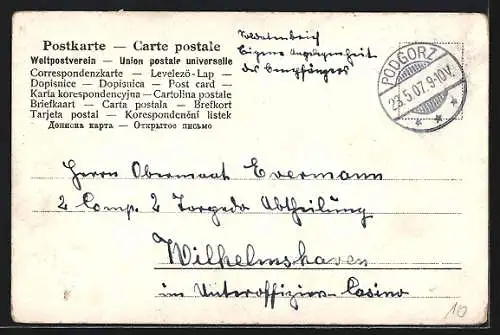 Postkarte — Carte postale
Weltpostverein — Union postale universelle
Correspondenzkarte — Levelező-Lap —
Dopisnice — Dopisnica — Post card —
Karta korespondencyjna — Cartolina postale
Briefkaart — Carta postala — Brefkort
Tarjeta postal — Korespondenční listek
Дописна карта — Открытое письмо
Soldatenbrief
Eigene Angelegenheit
des Empfängers
PODGORZ
23.5.07.9-10V.
Herrn Obermaat Evermann
2 Comp. 2 Torpedo Abtheilung
Wilhelmshaven
im Unteroffizier-Casino
10